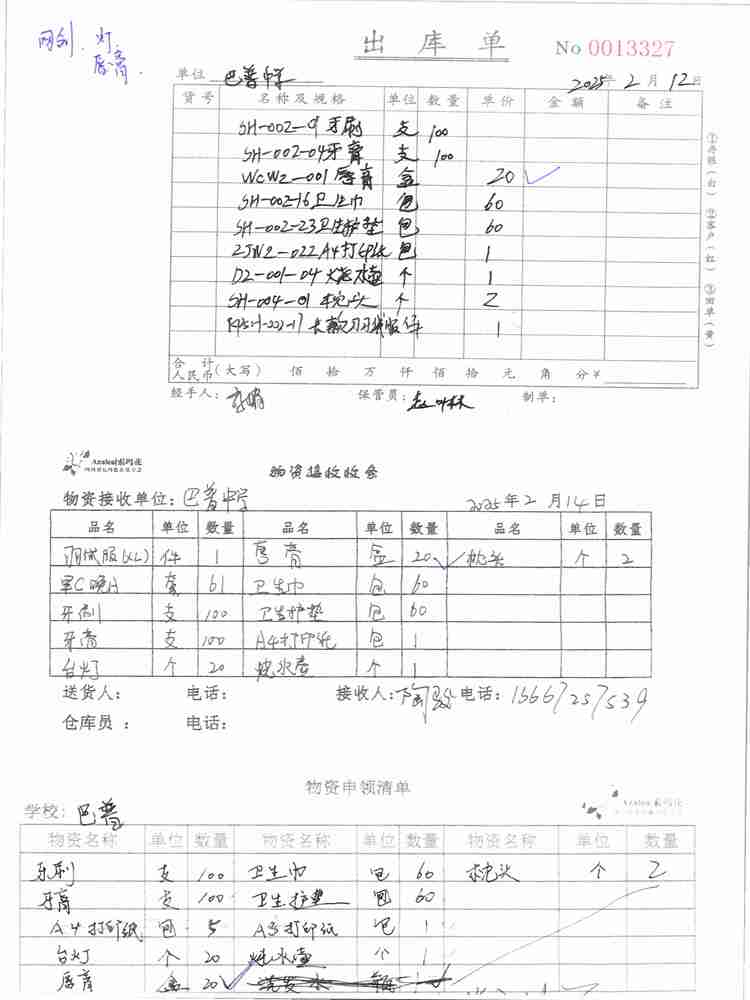 网刨、灯、
唇膏.
出 库 单 No 0013327
单位 巴普中学 2025年 2 月 12日
货号 名称及规格 单位 数量 单价 金额 备注
SH-002-01牙刷 支 100
SH-002-04牙膏 支 100
WCWZ-001唇膏 盒 20 ✓
SH-002-16卫生巾 包 60
SH-002-23卫生护垫 包 60
ZJWZ-022A4打印纸 包 1
DZ-001-04烧水壶 个 1
SH-004-01枕头 个 2
件 1
①存根(白) ②客户(红) ③回单(黄)
合计人民币(大写) 佰 拾 万 仟 佰 拾 元 角 分 ¥
经手人: 保管员: 制单:
Azalea索玛花
物资接收收条
物资接收单位: 巴普中学 2025年 2 月 14 日
品名 单位 数量 品名 单位 数量 品名 单位 数量
羽绒服(XL) 件 1 唇膏 盒 20✓ 枕头 个 2
套 61 卫生巾 包 60
牙刷 支 100 卫生护垫 包 60
牙膏 支 100 A4打印纸 包 1
台灯 个 20 烧水壶 个 1
送货人: 电话: 接收人: 电话: 15667257539
仓库员: 电话:
物资申领清单
学校: 巴普 Azalea索玛花
物资名称 单位 数量 物资名称 单位 数量 物资名称 单位 数量
牙刷 支 100 卫生巾 包 60 枕头 个 2
牙膏 支 100 卫生护垫 包 60
A4打印纸 包 5 A3打印纸 包 1
台灯 个 20 烧水壶 个 1
唇膏 盒 20✓